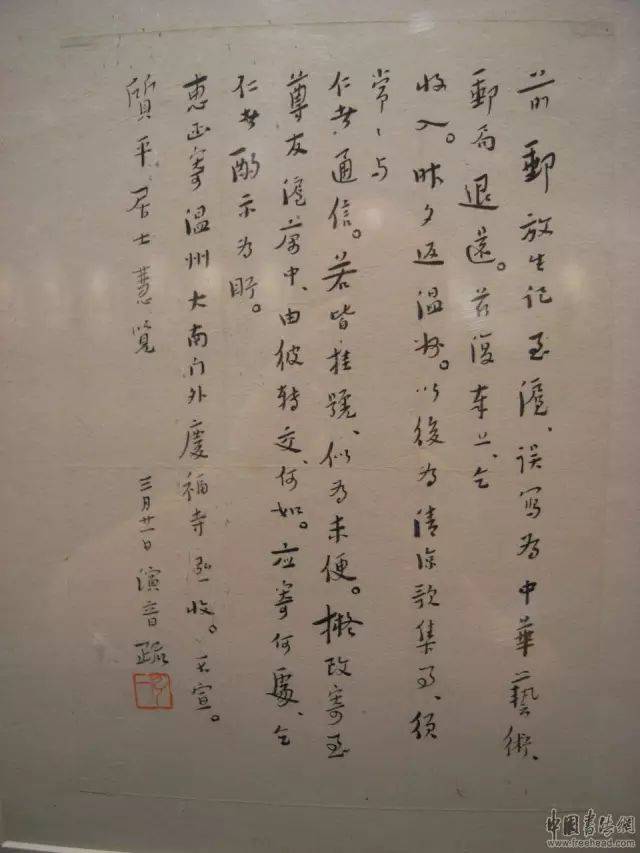 前郵放生記至滬、误写為中華藝術、
郵局退還。兹復奉上、乞
收入。昨夕返温州。以後為清凉歌集事、须
常〻与
仁者通信。若皆挂號、似為未便。擬改寄至
尊友滬寓中、由彼轉交、何如。应寄何處、乞
仁者酌示為盼。
惠函寄温州大南门外慶福寺弘一收。不宣。
質平居士慧览
三月廿一日 演音疏
中国书法网
www.freehead.com